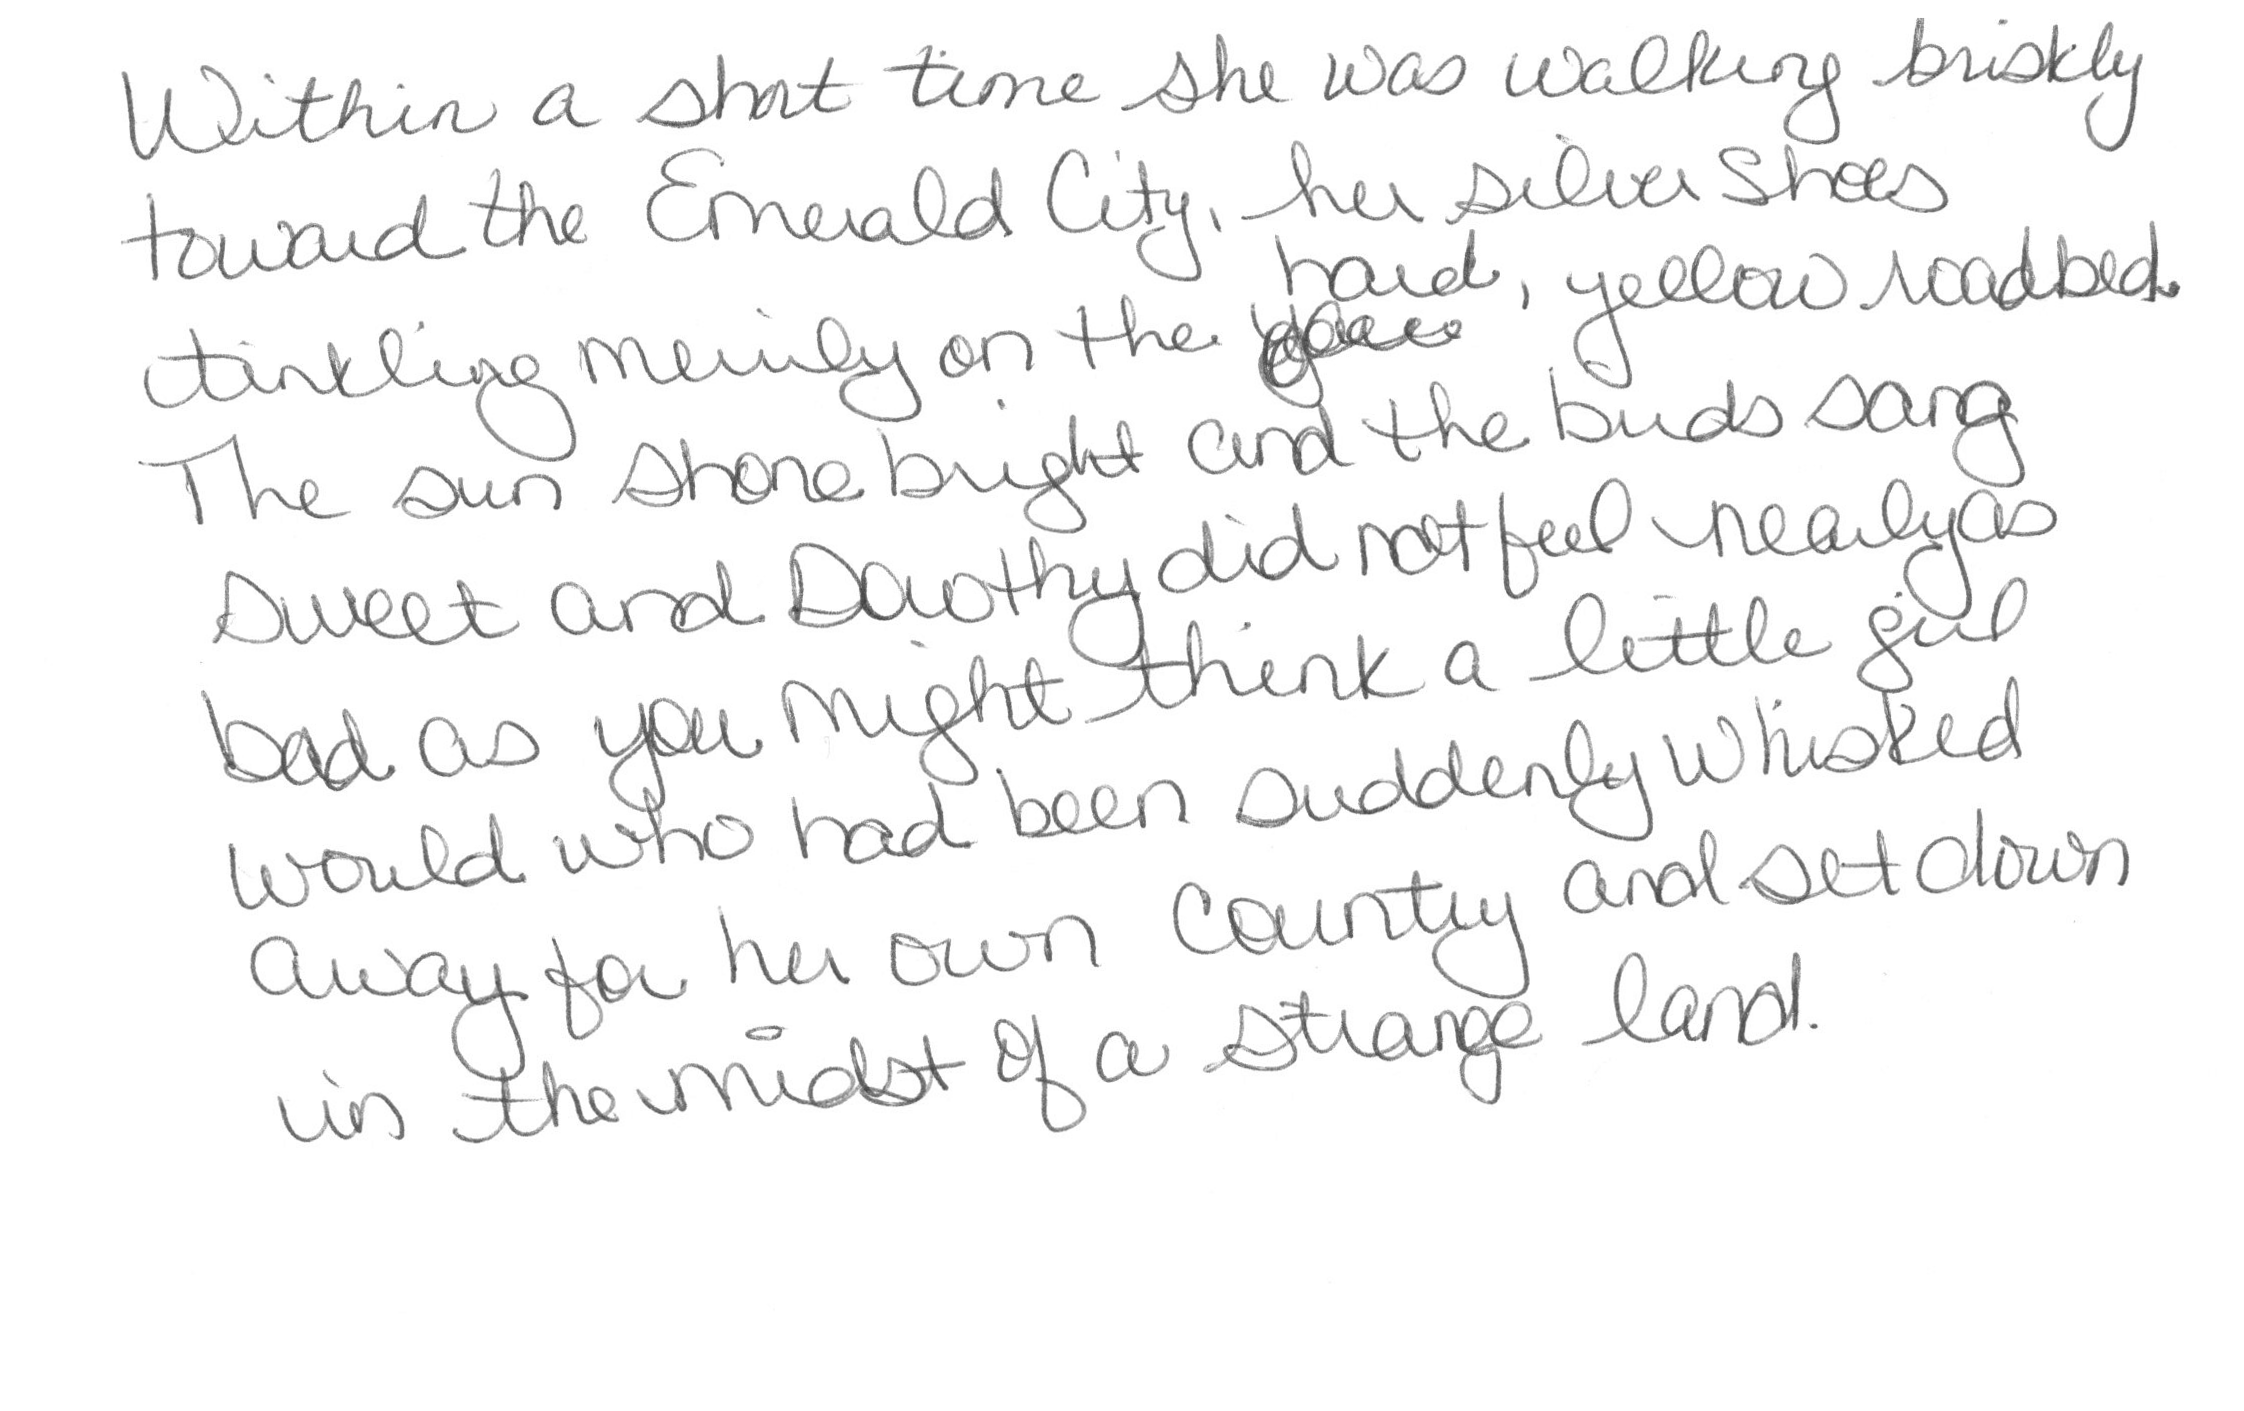 Within a short time she was walking briskly
toward the Emerald City, her silver Shoes
tinkling merrily on the hard, yellow roadbed.
The sun shone bright and the birds sang
sweet and Dorothy did not feel nearly as
bad as you might think a little girl
would who had been suddenly whisked
away for her own country and set down
in the midst of a strange land.